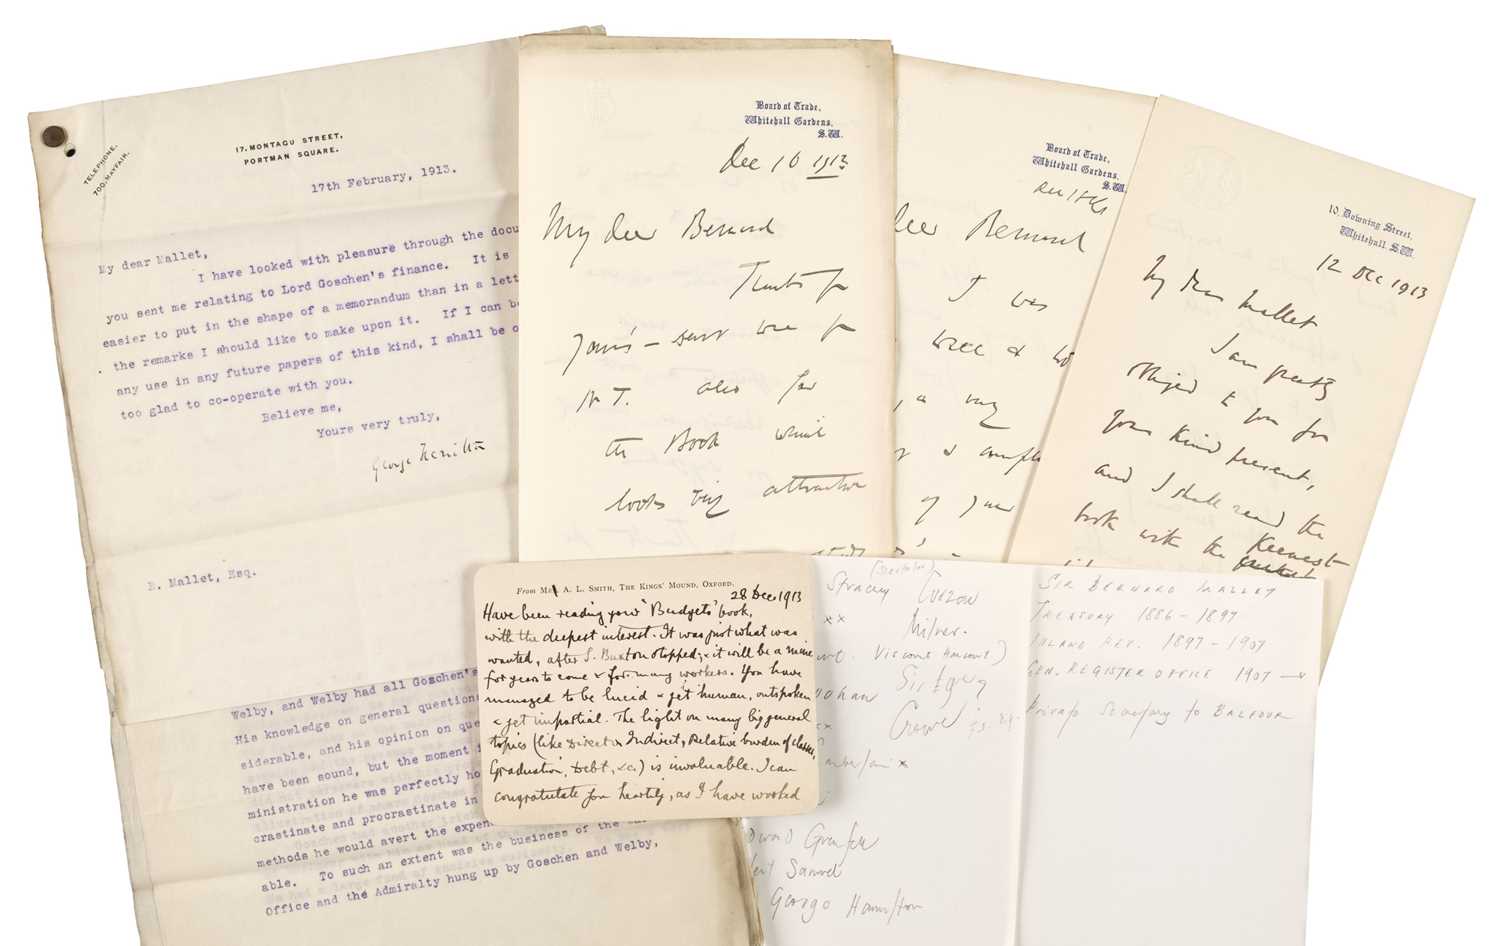 TELEPHONE.
700. MAYFAIR.
17. MONTAGU STREET,
PORTMAN SQUARE.
17th February, 1913.
My dear Mallet,
I have looked with pleasure through the docu
you sent me relating to Lord Goschen's finance. It is
easier to put in the shape of a memorandum than in a lett
the remarks I should like to make upon it. If I can be
any use in any future papers of this kind, I shall be o
too glad to co-operate with you.
Believe me,
Yours very truly,
George Hamilton
B. Mallet, Esq.
Welby, and Welby had all Goschen's
His knowledge on general questions
siderable, and his opinion on que
have been sound, but the moment i
ministration he was perfectly ho
crastinate and procrastinate in
methods he would avert the expen
able. To such an extent was the business of the
Office and the Admiralty hung up by Goschen and Welby,
Board of Trade,
Whitehall Gardens,
S.W.
Dec 16 1913
My dear Bernard
Thanks for
yours — sent me for
N T. also for
the Book which
looks very attractive
Board of Trade,
Whitehall Gardens,
S.W.
dear Bernard
I was
a very
of your
10, Downing Street,
Whitehall S.W.
12 Dec 1913
My dear Mallet
I am greatly
obliged to you for
your kind present,
and I shall read the
book with the keenest
From Mrs A. L. Smith, The Kings' Mound, Oxford.
28 Dec. 1913
Have been reading your 'Budgets' book,
with the deepest interest. It was just what was
wanted, after S. Buxton stopped; & it will be a mine
for years to come & for many workers. You have
managed to be lucid & yet human, outspoken
& yet impartial. The light on many big general
topics (like Direct v Indirect, Relative burden of classes,
Graduation, Debt, &c.) is invaluable. I can
congratulate you heartily, as I have worked
Strachey Curzon
xx Milner.
Viscount Harcourt)
Crowe
x
George Hamilton
Samuel
SIR BERNARD MALLET
TREASURY 1886 - 1897
INLAND REV. 1897 - 1907
GEN. REGISTER OFFICE 1907 →
Private Secretary to BALFOUR